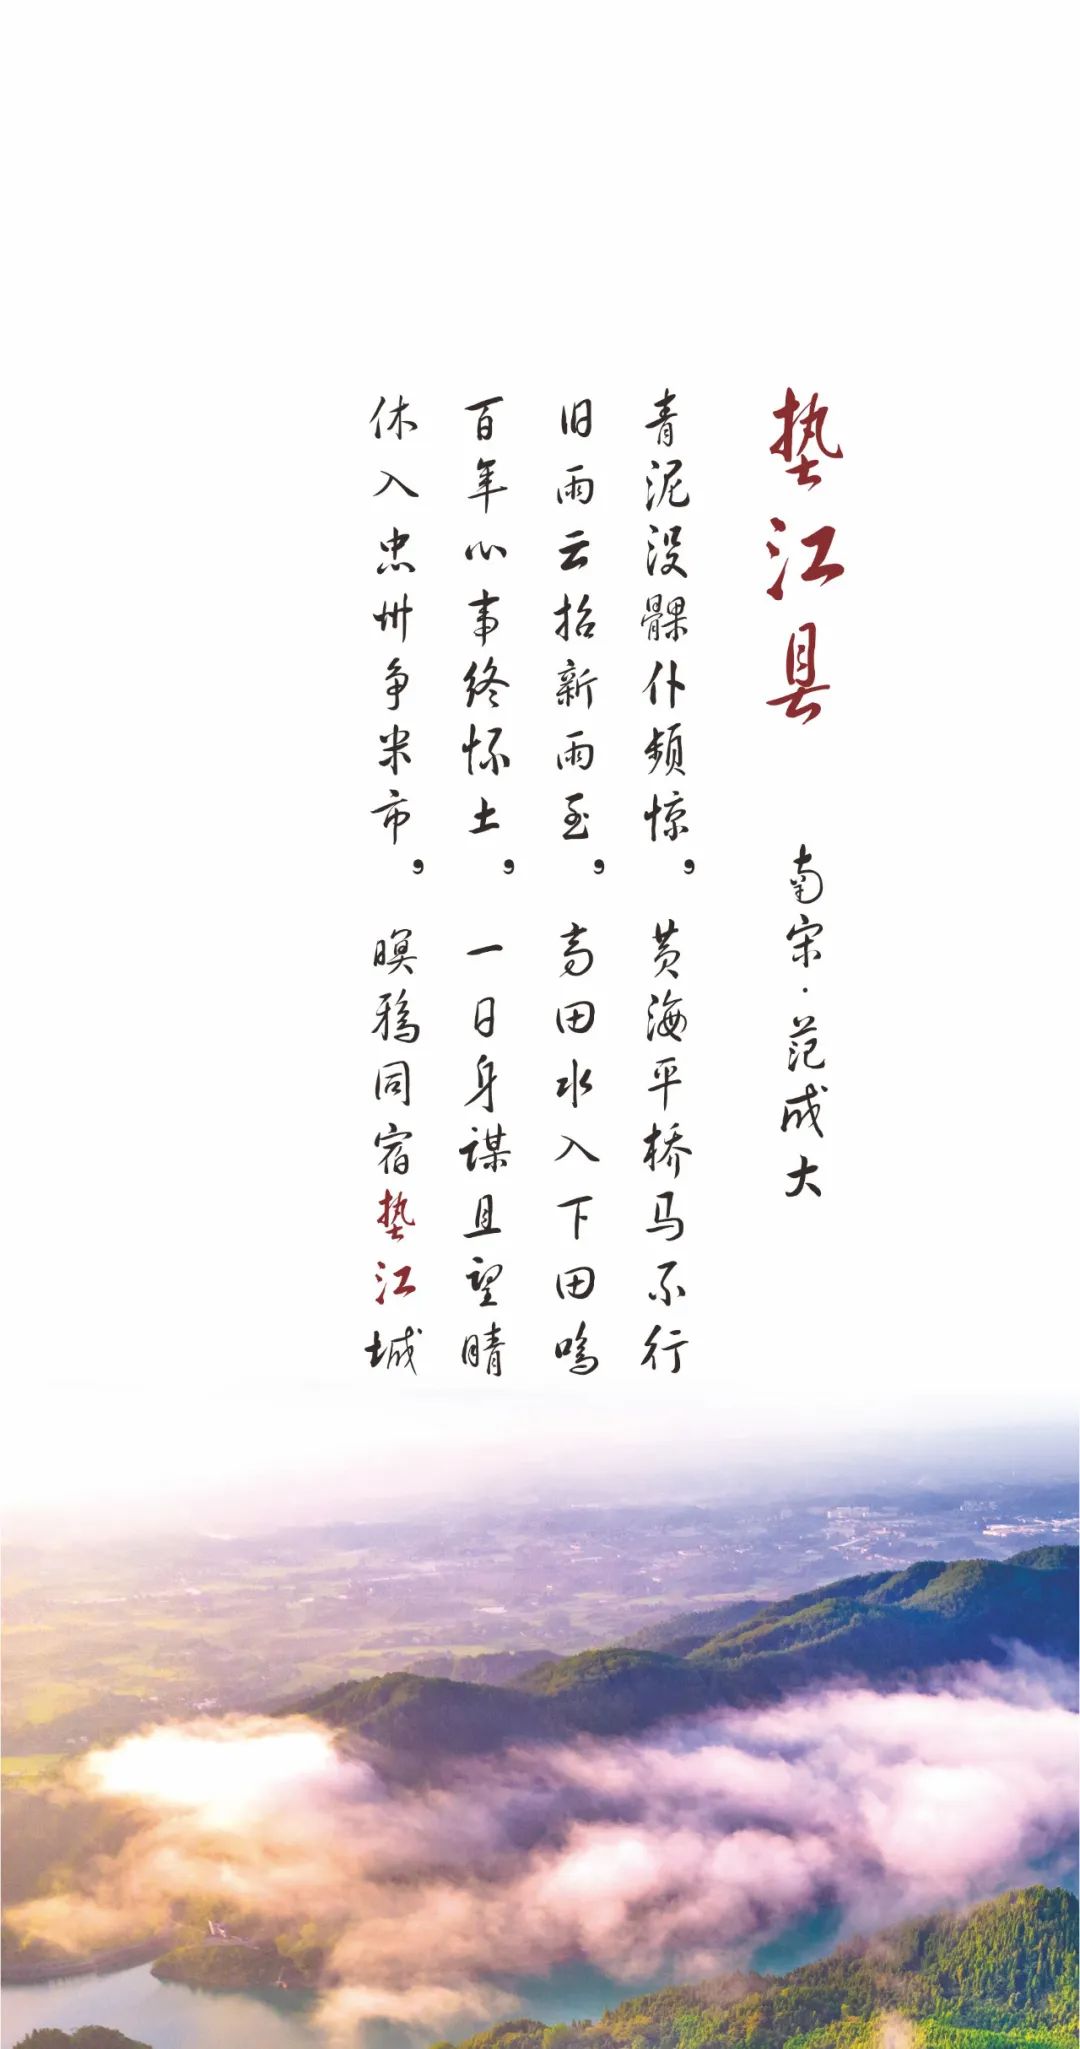 垫江县
南宋·范成大
青泥没髁仆频惊，黄海平桥马不行
旧雨云招新雨至，高田水入下田鸣
百年心事终怀土，一日身谋且望晴
休入忠州争米市，暝鸦同宿垫江城